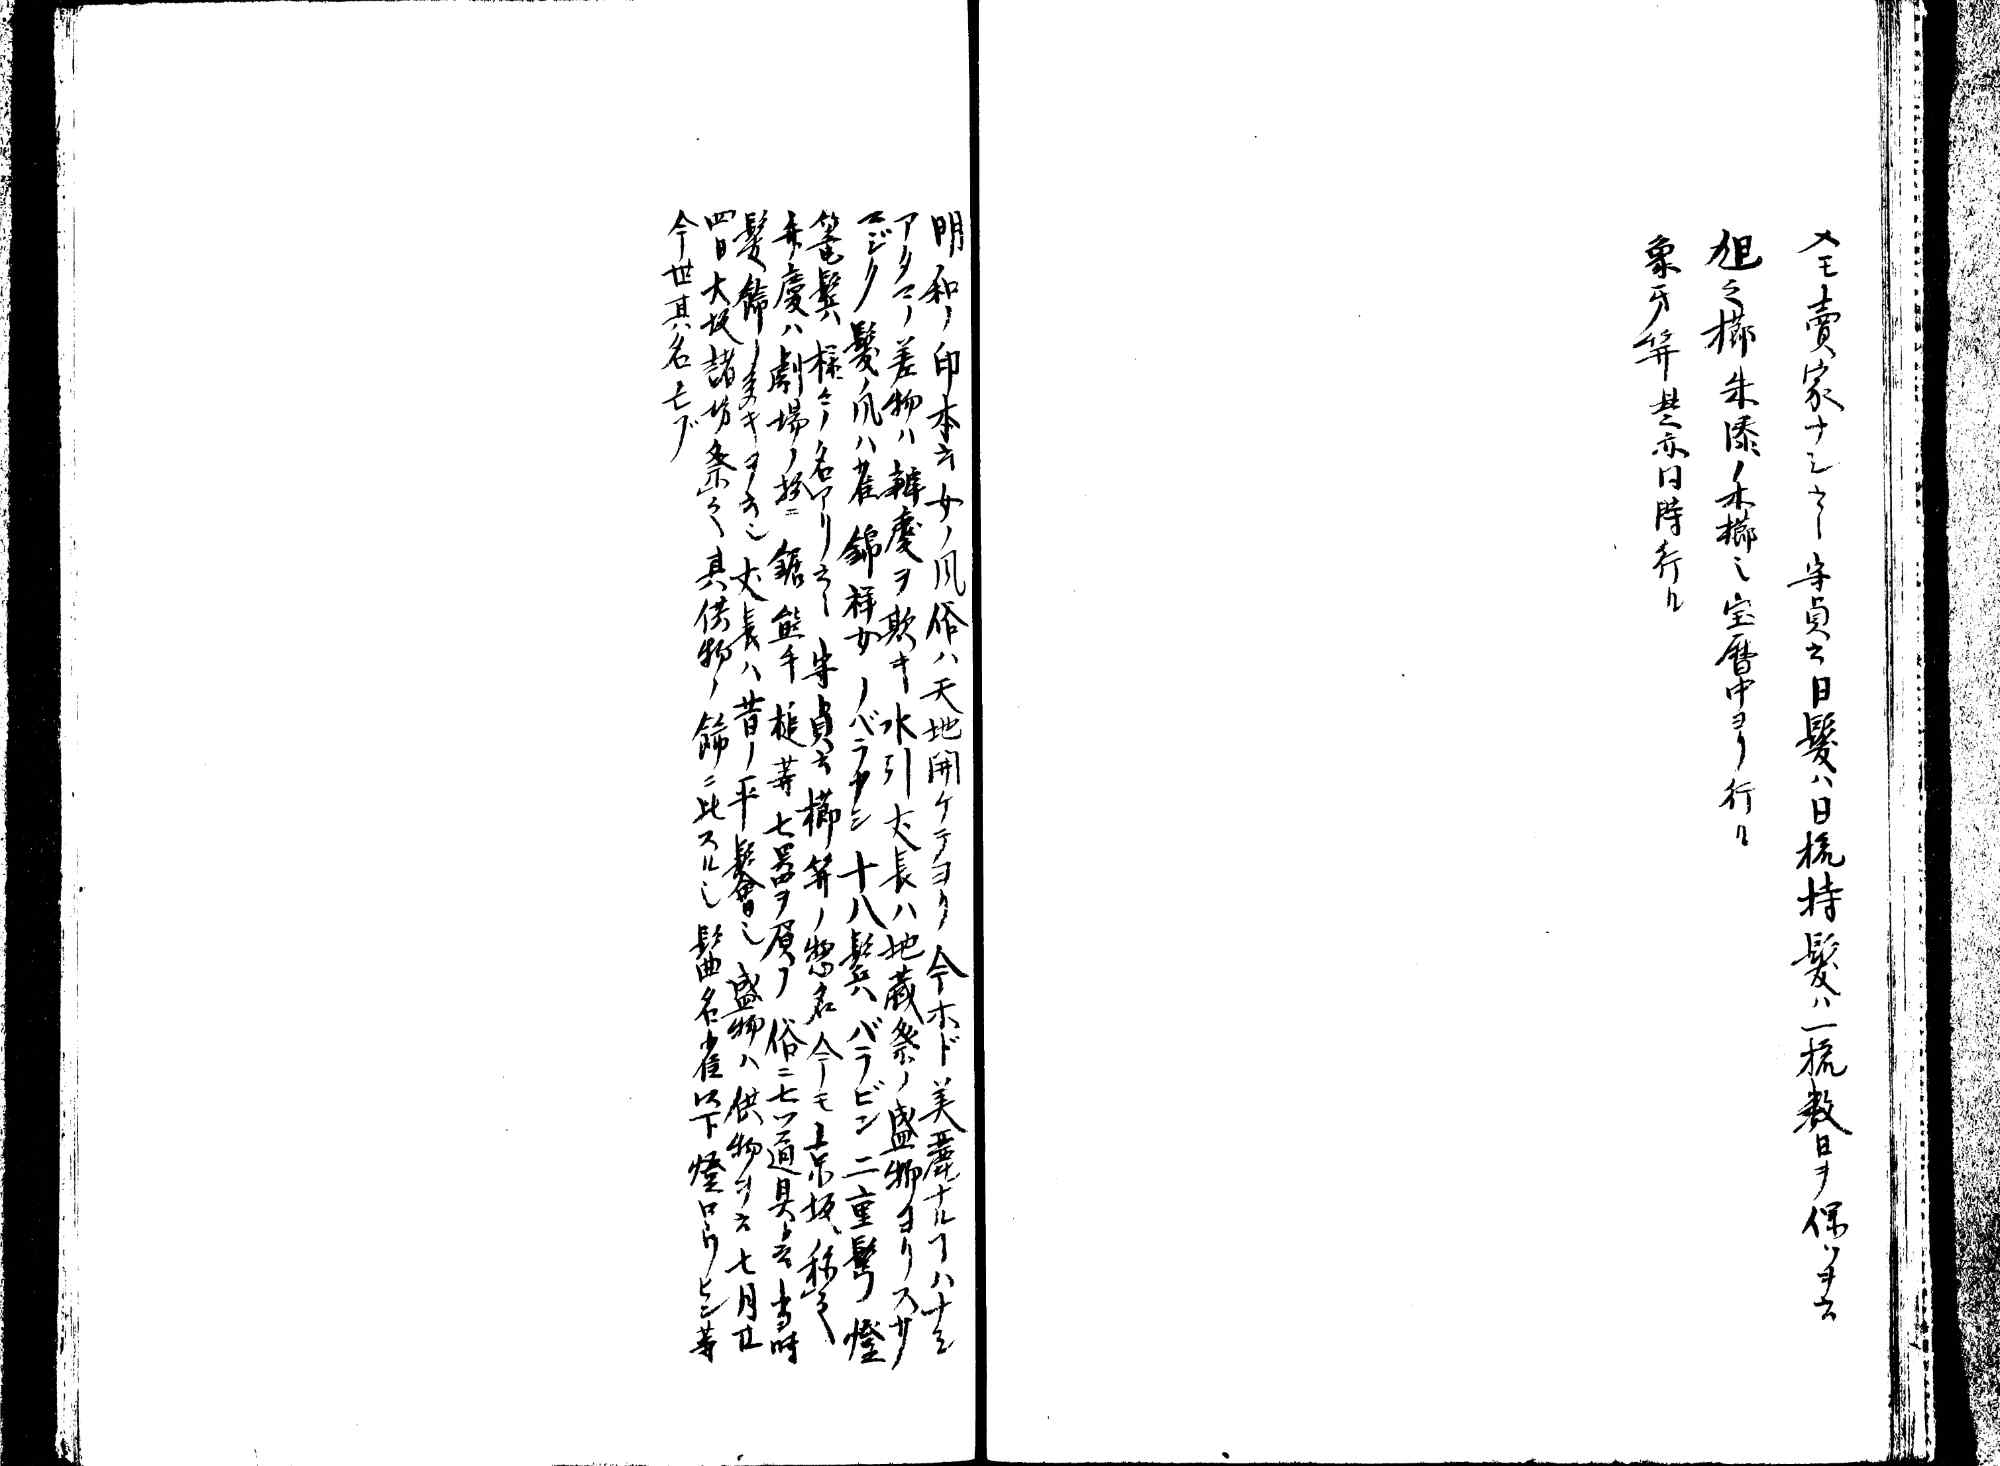 メモ賣家ナシト云守貞云日髪ハ日梳持髪ハ一梳数日ヲ保ツヲ云
旭之櫛朱漆ノ木櫛也宝暦中ヨリ行ル
象牙笄是亦同時行ル
明和ノ印本云女ノ風俗ハ天地開ケテヨリ今ホド美麗ナルヿハナシ
アタマノ差物ハ辨慶ヲ欺キ水引丈長ハ地蔵祭ノ盛物ヨリスサ
マジク髪ノ風ハ雀錦祥女ノバラヤシ十八鬢ハバラビン二重髩燈
篭鬢ハ様々ノ名アリ云々守貞云櫛笄ノ惣名今モ京坂ノ称也
弁慶ハ劇場ノ扮ニ鋸熊手槌等七器ヲ負フ俗ニ七ツ道具ト云当時
髪飾ノ多キヲ云也丈長ハ昔ノ平髻也盛物ハ供物ヲ云七月廿
四日大坂諸坊祭之其供物ノ飾ニ比スル也髷曲名雀以下燈ロウビン等
今世其名亡ブ